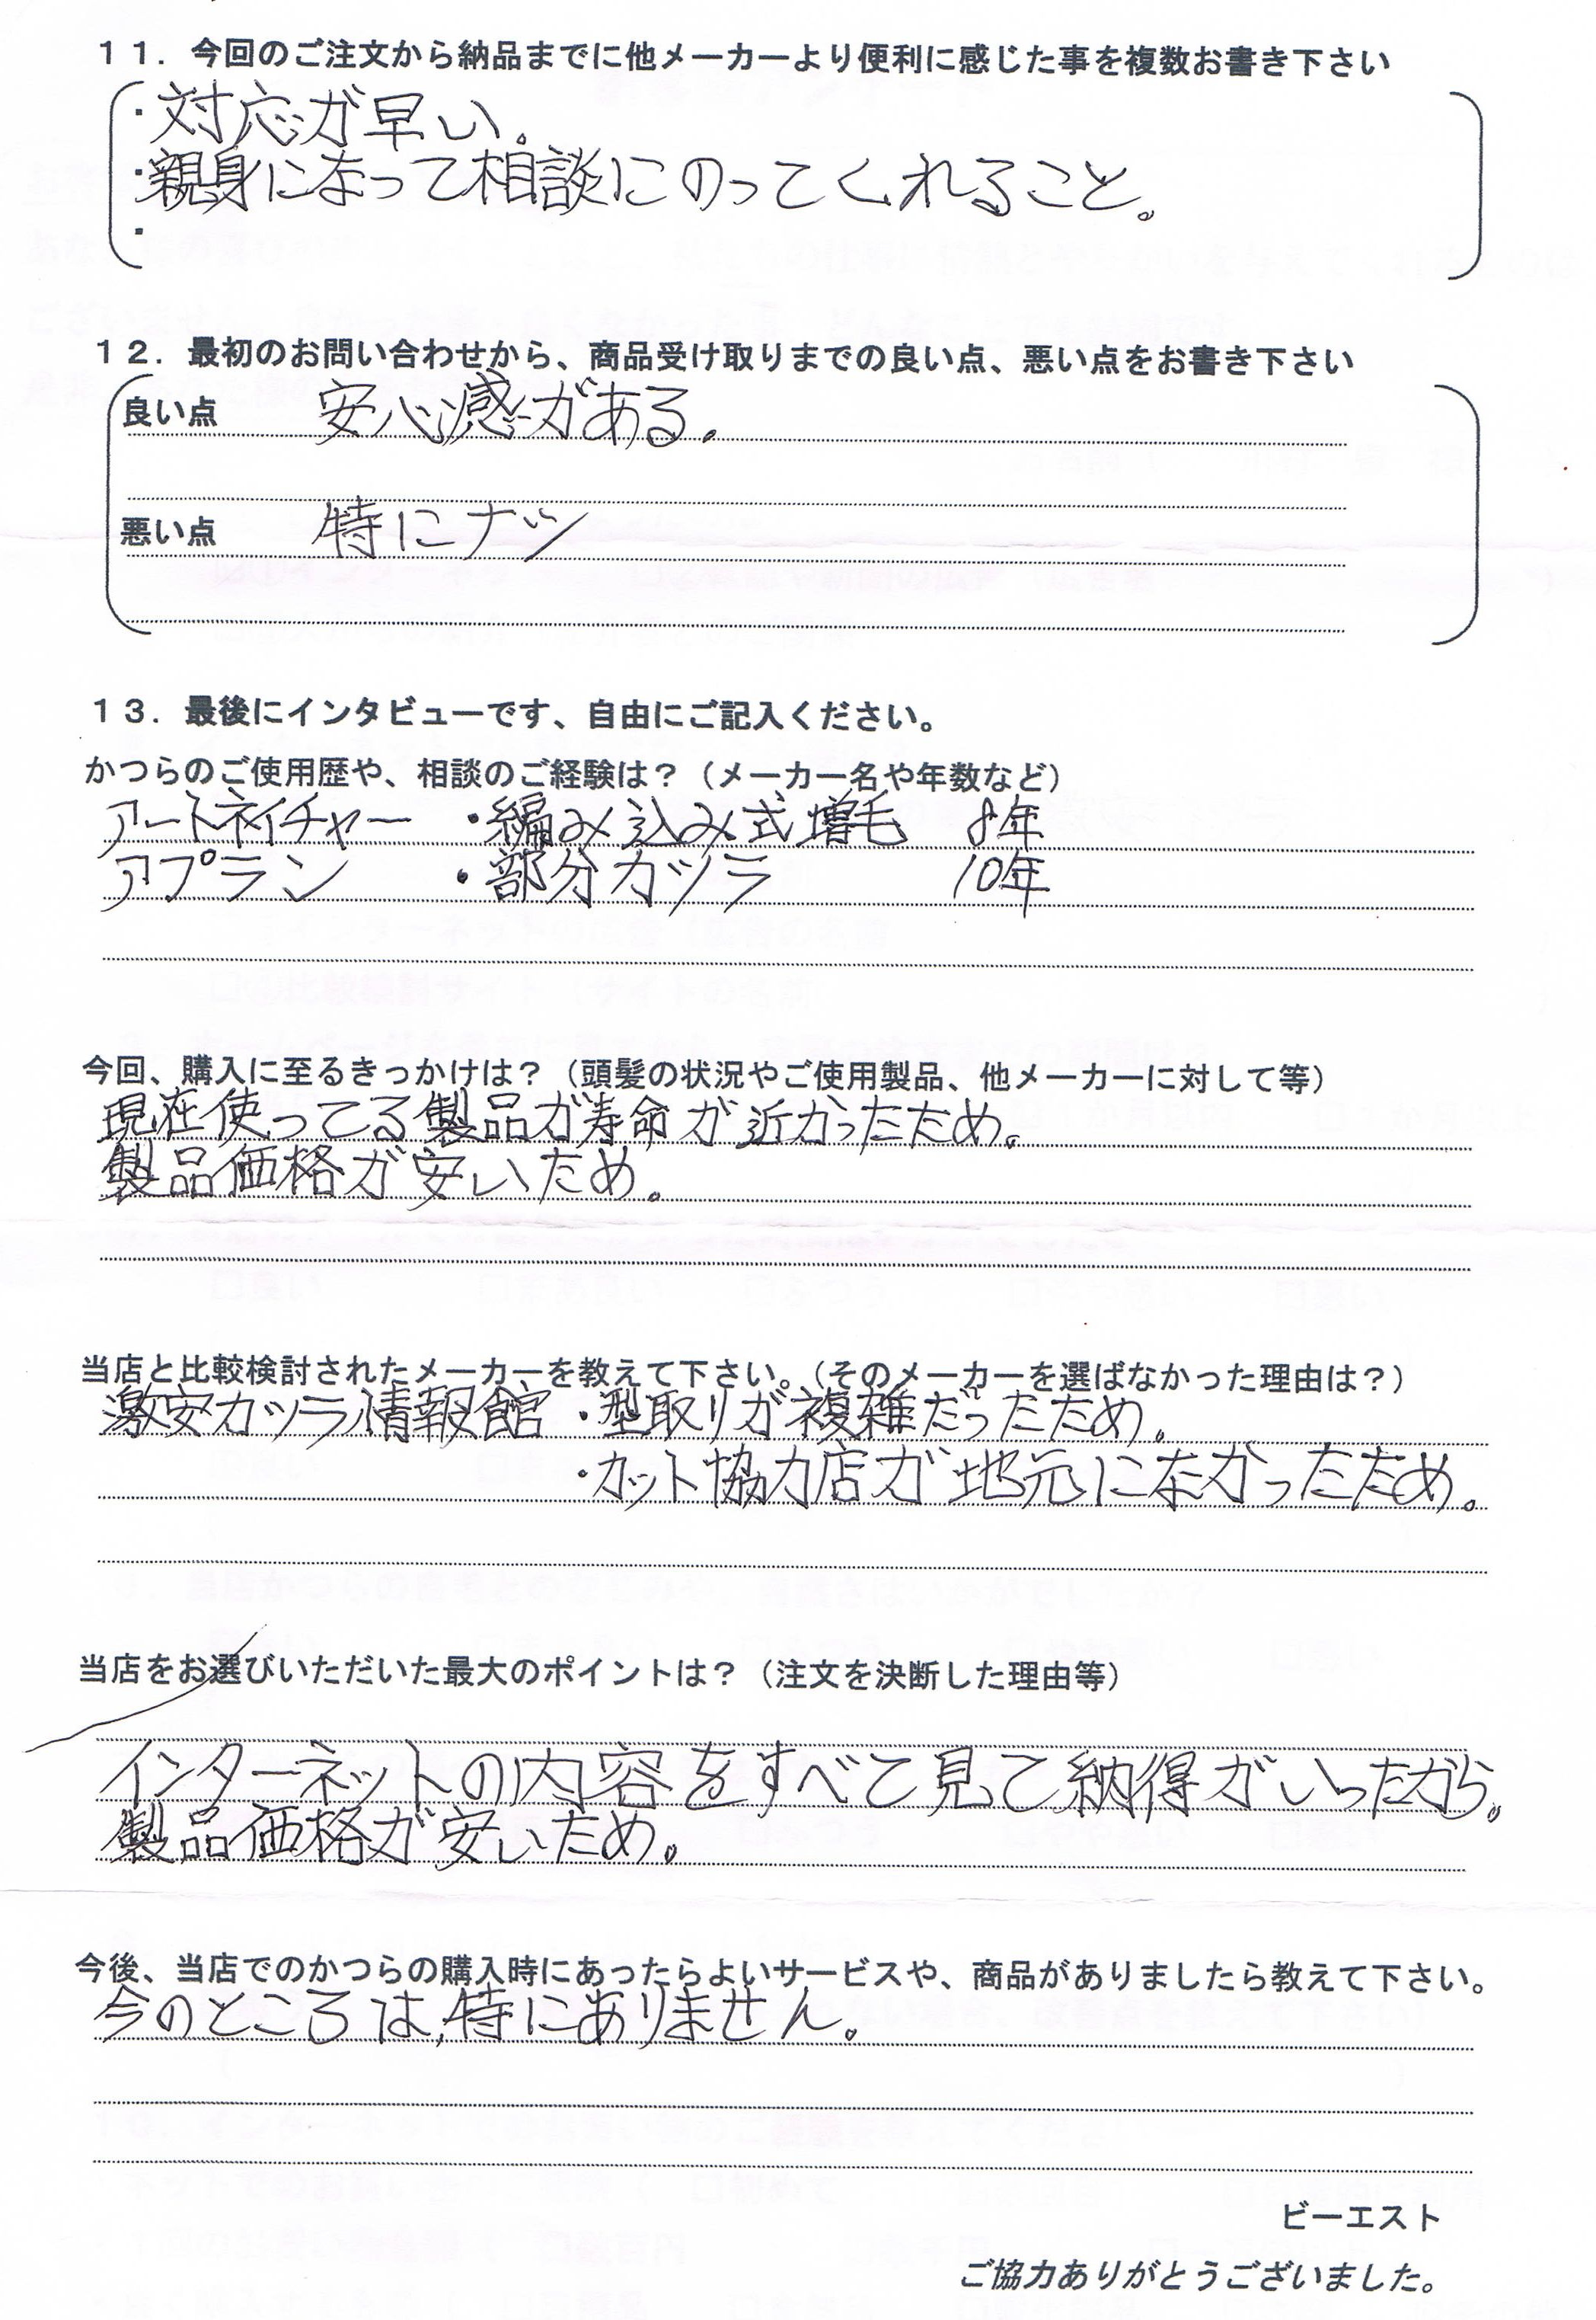 １１．今回のご注文から納品までに他メーカーより便利に感じた事を複数お書き下さい
・対応が早い。
・親身になって相談にのってくれること。
・
１２．最初のお問い合わせから、商品受け取りまでの良い点、悪い点をお書き下さい
良い点 安心感がある。
悪い点 特にナシ
１３．最後にインタビューです、自由にご記入ください。
かつらのご使用歴や、相談のご経験は？（メーカー名や年数など）
アートネイチャー ・編み込み式増毛 8年
アプラン ・部分カツラ 10年
今回、購入に至るきっかけは？（頭髪の状況やご使用製品、他メーカーに対して等）
現在使ってる製品が寿命が近かったため。
製品価格が安いため。
当店と比較検討されたメーカーを教えて下さい。（そのメーカーを選ばなかった理由は？）
激安カツラ情報館 ・型取りが複雑だったため。
・カット協力店が地元になかったため。
当店をお選びいただいた最大のポイントは？（注文を決断した理由等）
インターネットの内容をすべて見て納得がいったから。
製品価格が安いため。
今後、当店でのかつらの購入時にあったらよいサービスや、商品がありましたら教えて下さい。
今のところは、特にありません。
ビーエスト
ご協力ありがとうございました。